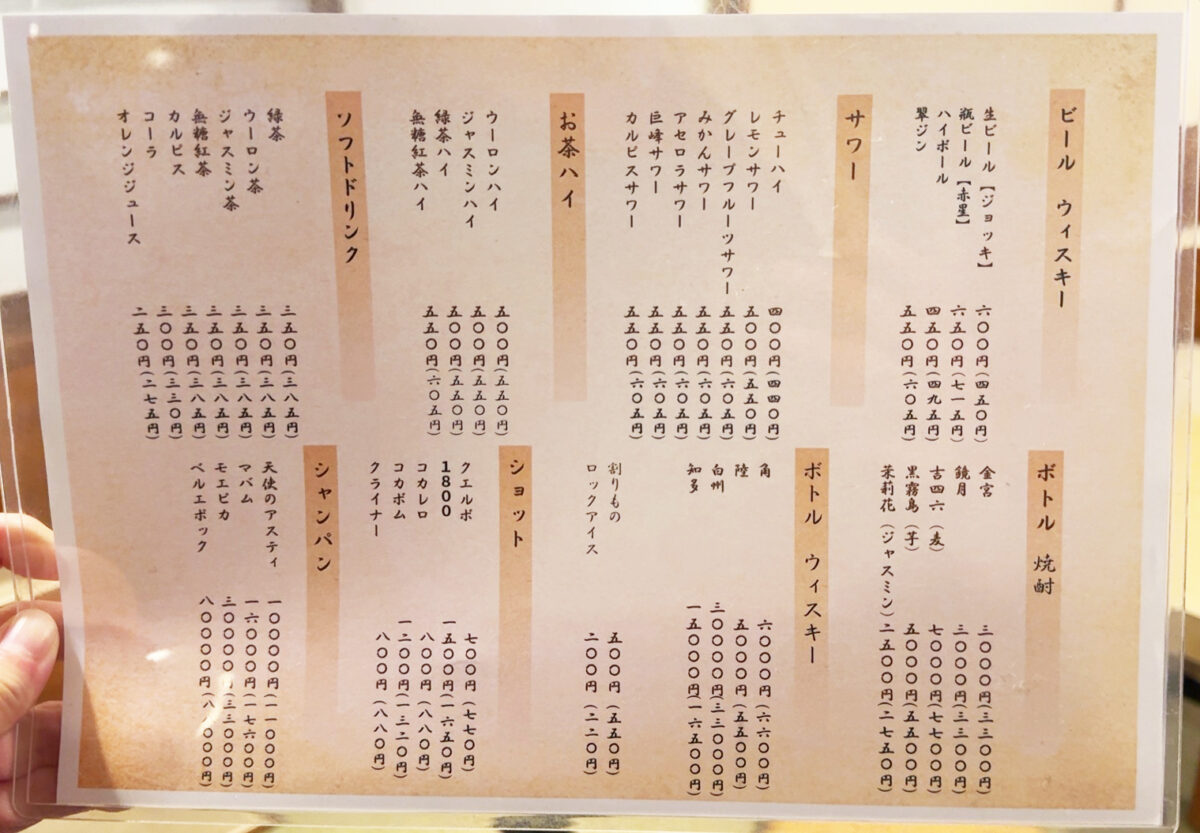 ビール ウィスキー
生ビール【ジョッキ】 六〇〇円(四五〇円)
瓶ビール【赤星】 六五〇円(七一五円)
ハイボール 四五〇円(四九五円)
翠ジン 五五〇円(六〇五円)
サワー
チューハイ 四〇〇円(四四〇円)
レモンサワー 五〇〇円(五五〇円)
グレープフルーツサワー 五五〇円(六〇五円)
みかんサワー 五五〇円(六〇五円)
アセロラサワー 五五〇円(六〇五円)
巨峰サワー 五五〇円(六〇五円)
カルピスサワー 五五〇円(六〇五円)
お茶ハイ
ウーロンハイ 五〇〇円(五五〇円)
ジャスミンハイ 五〇〇円(五五〇円)
緑茶ハイ 五〇〇円(五五〇円)
無糖紅茶ハイ 五五〇円(六〇五円)
ソフトドリンク
緑茶 三五〇円(三八五円)
ウーロン茶 三五〇円(三八五円)
ジャスミン茶 三五〇円(三八五円)
無糖紅茶 三五〇円(三八五円)
カルピス 三五〇円(三八五円)
コーラ 三〇〇円(三三〇円)
オレンジジュース 二五〇円(二七五円)
ボトル 焼酎
金宮 三〇〇〇円(三三〇〇円)
鏡月 三〇〇〇円(三三〇〇円)
吉四六(麦) 七〇〇〇円(七七〇〇円)
黒霧島(芋) 五〇〇〇円(五五〇〇円)
茉莉花(ジャスミン) 二五〇〇円(二七五〇円)
ボトル ウィスキー
角 六〇〇〇円(六六〇〇円)
陸 五〇〇〇円(五五〇〇円)
白州 三〇〇〇〇円(三三〇〇〇円)
知多 一五〇〇〇円(一六五〇〇円)
割りもの 五〇〇円(五五〇円)
ロックアイス 二〇〇円(二二〇円)
ショット
クエルボ 七〇〇円(七七〇円)
1800 一五〇〇円(一六五〇円)
コカレロ 八〇〇円(八八〇円)
コカボム 一二〇〇円(一三二〇円)
クライナー 八〇〇円(八八〇円)
シャンパン
天使のアスティ 一〇〇〇〇円(一一〇〇〇円)
マバム 一六〇〇〇円(一七六〇〇円)
モエピカ 三〇〇〇〇円(三三〇〇〇円)
ベルエポック 八〇〇〇〇円(八八〇〇〇円)